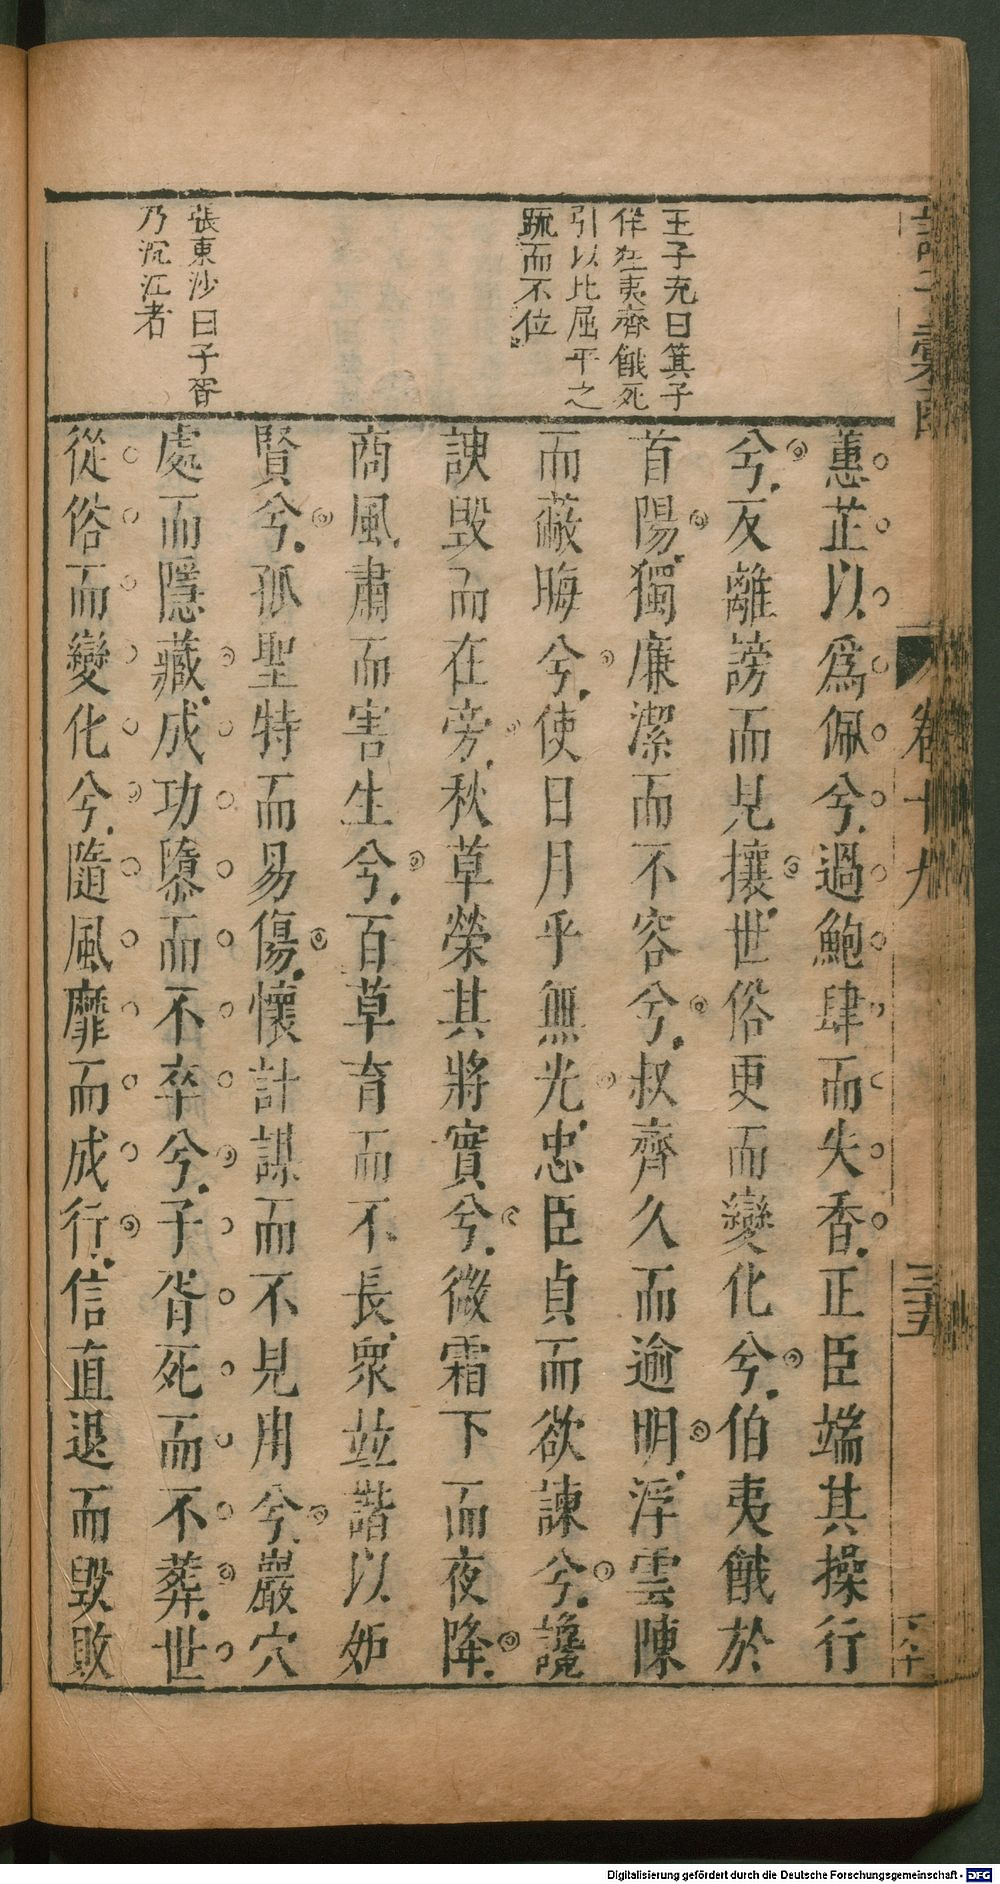 王子充曰箕子
佯狂夷齊餓死
引以比屈平之
䟽而不位
張東沙曰子胥
乃沉江者
蕙芷以爲佩兮過鮑肆而失香正臣端其操行
兮反離謗而見攘世俗更而變化兮伯夷餓於
首陽獨廉潔而不容兮叔齊久而逾明浮雲陳
而蔽晦兮使日月乎無光忠臣貞而欲諫兮讒
諛毀而在旁秋草榮其將實兮微霜下而夜降
商風肅而害生兮百草育而不長衆並諧以妒
賢兮孤聖特而易傷懷計謀而不見用兮巖穴
處而隱藏成功隳而不卒兮子胥死而不葬世
從俗而變化兮隨風靡而成行信直退而毀敗
卷十九
三五
Digitalisierung gefördert durch die Deutsche Forschungsgemeinschaft - DFG